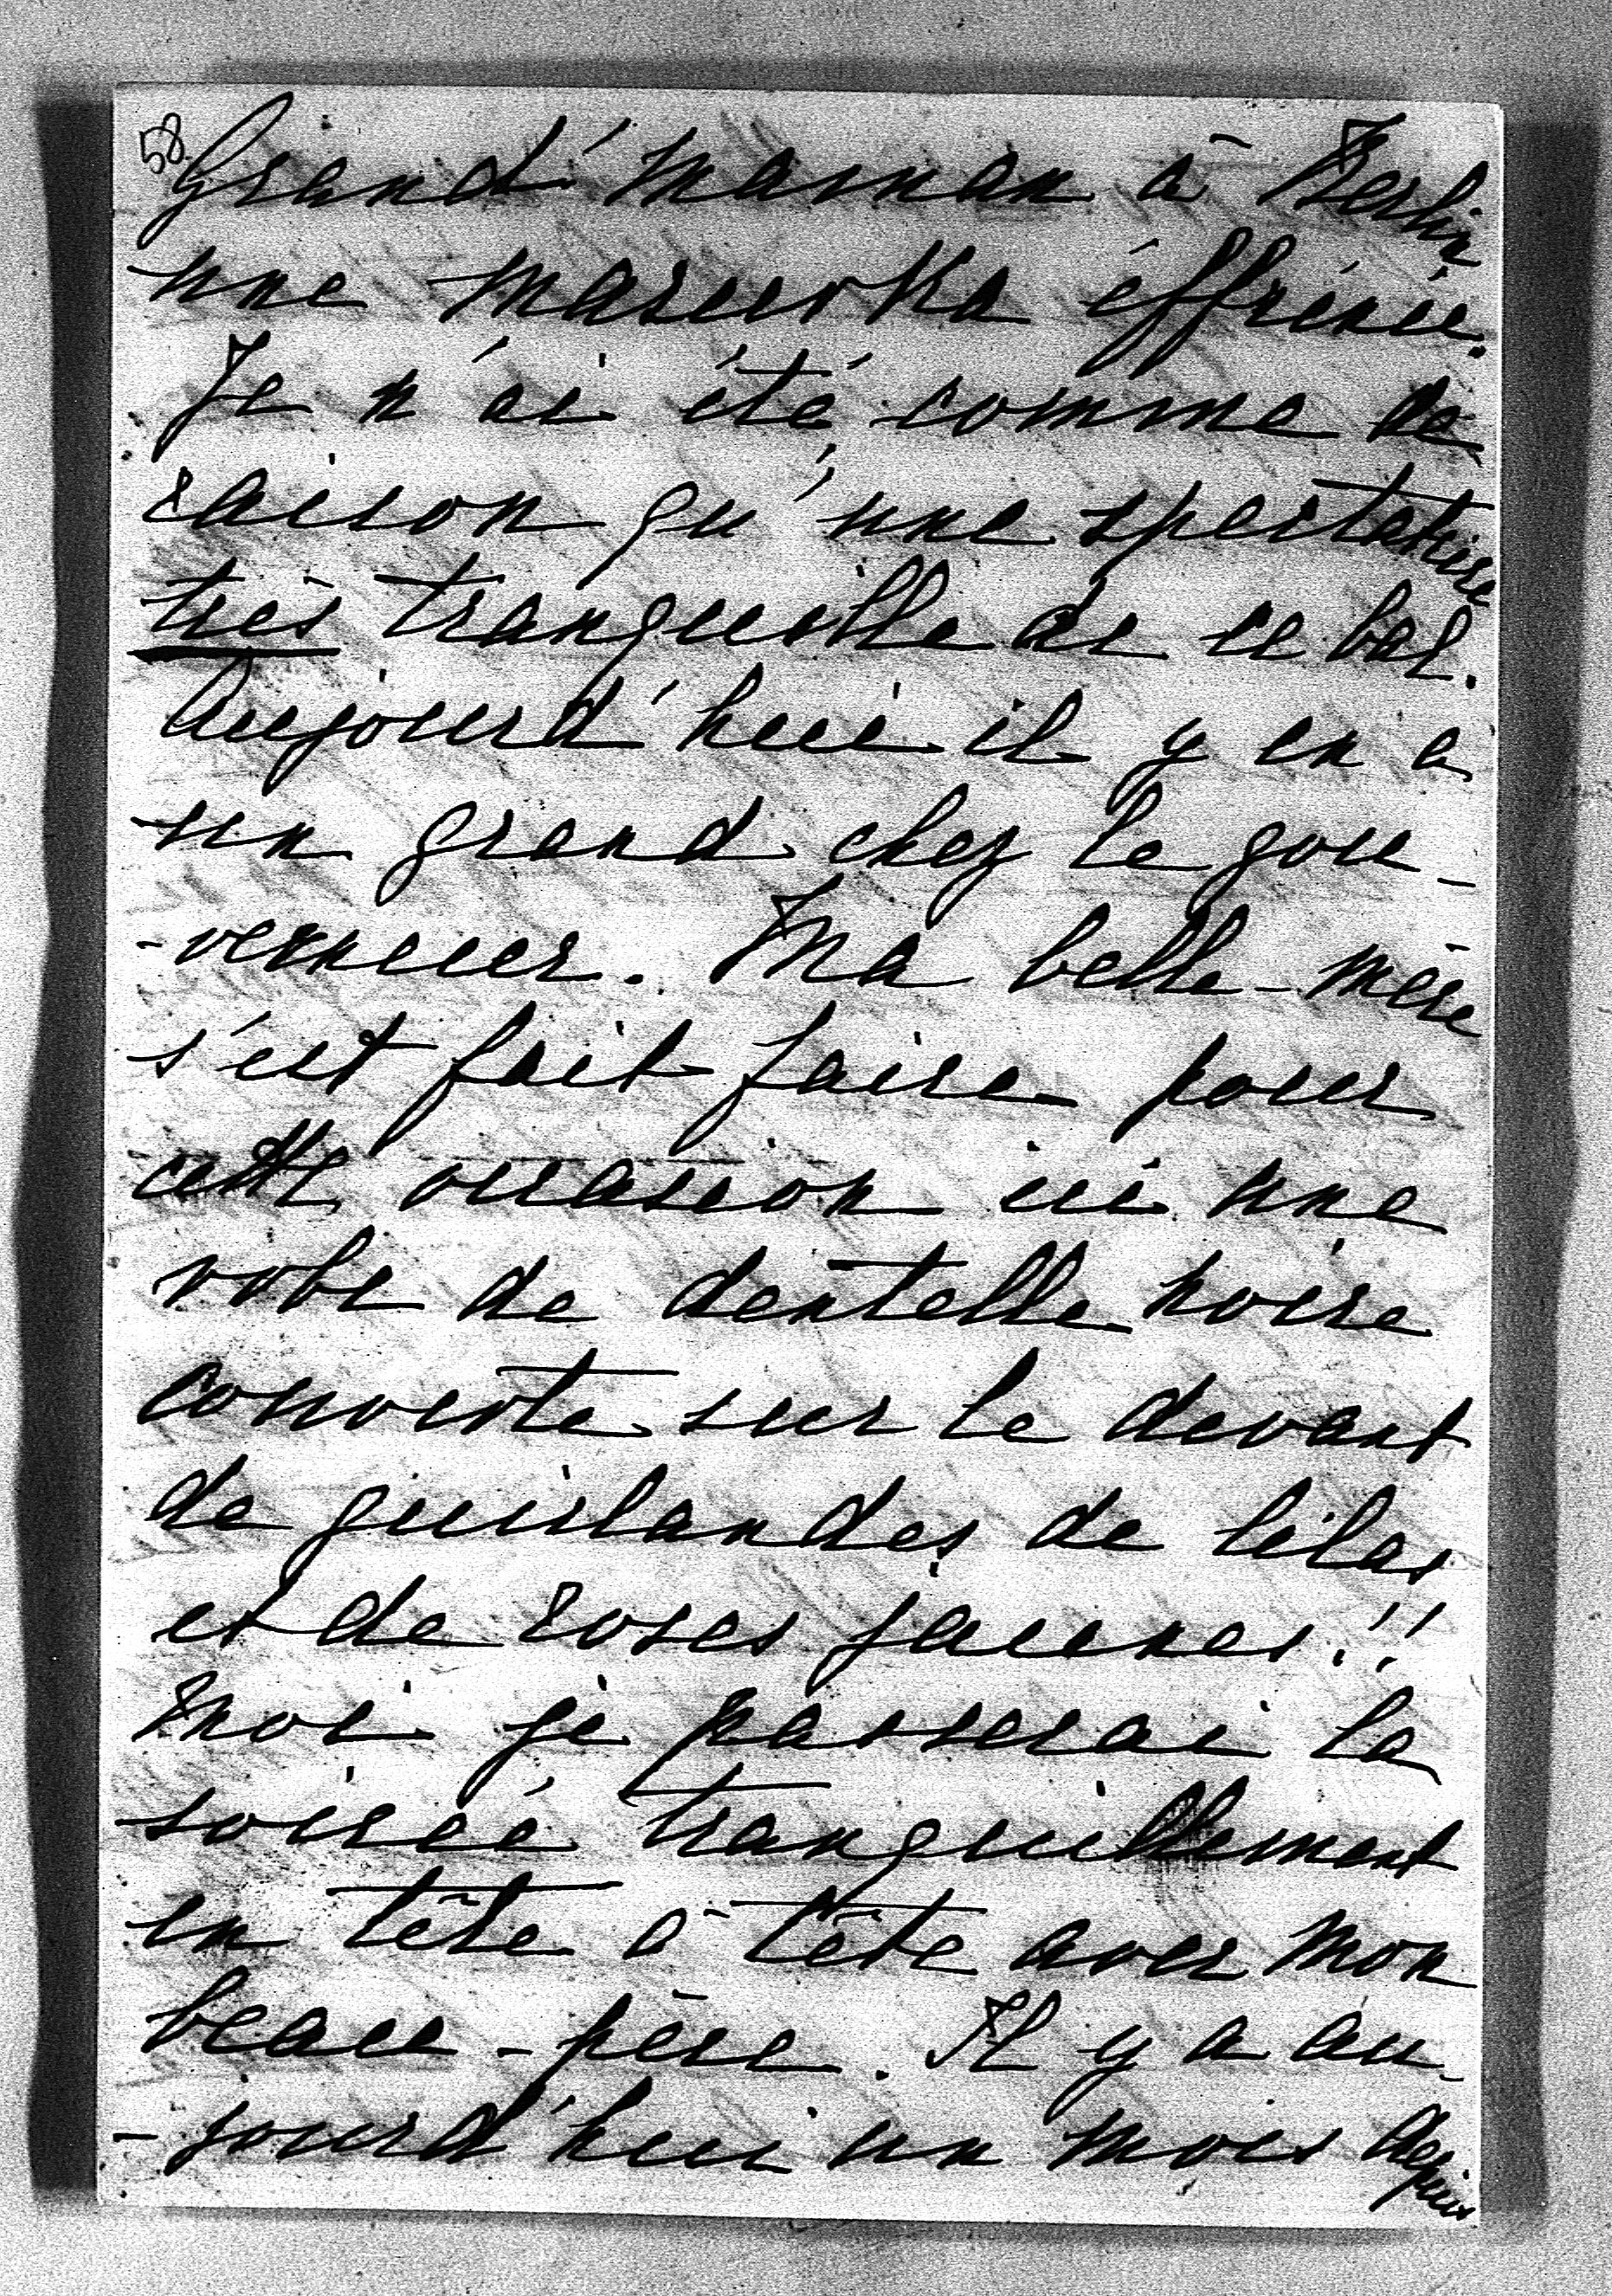 58
Grand'maman à Berlin
une masurka éffrénée.
Je n'ai été, comme de
raison qu'une spectatrice
très tranquille de ce bal.
Aujourd'hui il y en a
un grand chez le gou-
-verneur. Ma belle-mère
s'est fait faire pour
cette occasion ici une
robe de dentelle noire
couverte sur le devant
de guirlandes de lilas
et de roses jaunes!!
Moi je passerai la
soirée tranquillement
en tête à tête avec mon
beau-père. Il y a au-
-jourd'hui un mois depuis